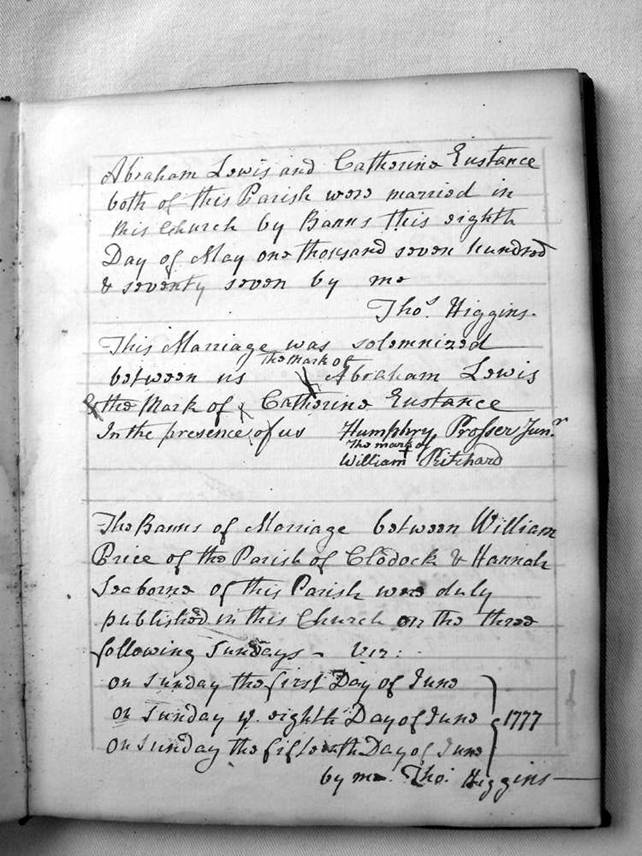 Abraham Lewis and Catherine Eustance
both of this Parish were married in
this Church by Banns this eighth
Day of May one thousand seven hundred
& seventy seven by me
Thos. Higgins.
This Marriage was solemnized
between us the Mark of X Abraham Lewis
& the Mark of X Catherine Eustance
In the presence of us Humphry Prosser Junr.
The mark of
William + Pritchard
The Banns of Marriage between William
Price of the Parish of Clodock & Hannah
Seaborne of this Parish were duly
published in this Church on the three
following Sundays - Viz:
on Sunday the first Day of June
on Sunday ye. eighth Day of June } 1777
on Sunday the fifteenth Day of June
by me Tho: Higgins